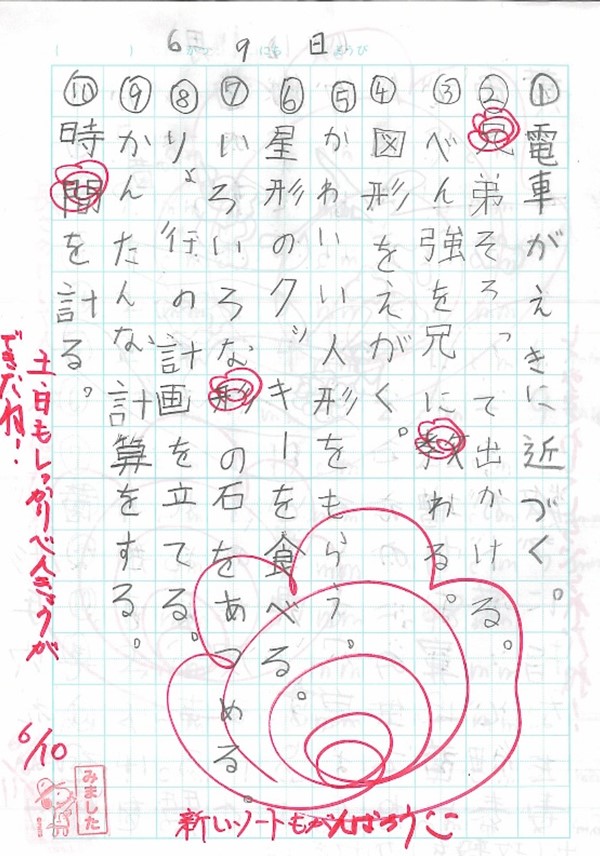 6がつ 9にち 日ようび
① 電車がえきに近づく。
② 兄弟そろって出かける。
③ べん強を兄に教わる。
④ 図形をえがく。
⑤ かわいい人形をもらう。
⑥ 星形のクッキーを食べる。
⑦ いろいろな形の石をあつめる。
⑧ りょ行の計画を立てる。
⑨ かんたんな計算をする。
⑩ 時間を計る。
土日もしっかりべんきょうが
できたね!
6/10
みました
新しいノートもがんばろう